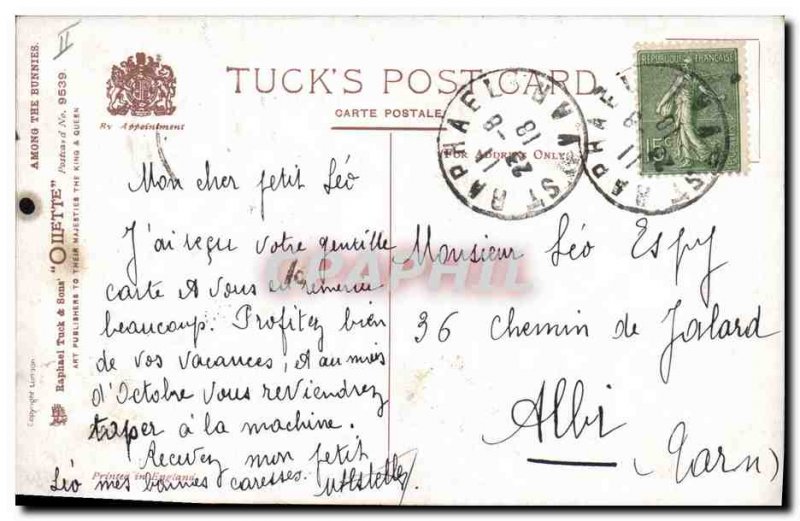 II
AMONG THE BUNNIES.
Postcard No. 9539.
"OILETTE"
Raphael Tuck & Sons'
ART PUBLISHERS TO THEIR MAJESTIES THE KING & QUEEN
Copyright London
By Appointment
TUCK'S POST CARD
CARTE POSTALE
FOR ADDRESS ONLY
ST RAPHAEL VAR
11
23 -8
18
ST RAPHAEL VAR
REPUBLIQUE FRANÇAISE
15c
Mon cher petit Léo
J'ai reçu votre gentille
carte & vous en remercie
beaucoup. Profitez bien
de vos vacances, & au mois
d'Octobre vous reviendrez
taper à la machine.
Recevez mon petit
Léo mes bonnes caresses.
Printed in England
Monsieur Léo Espy
36 chemin de Jalard
Albi
(Tarn)
CPAPHIL